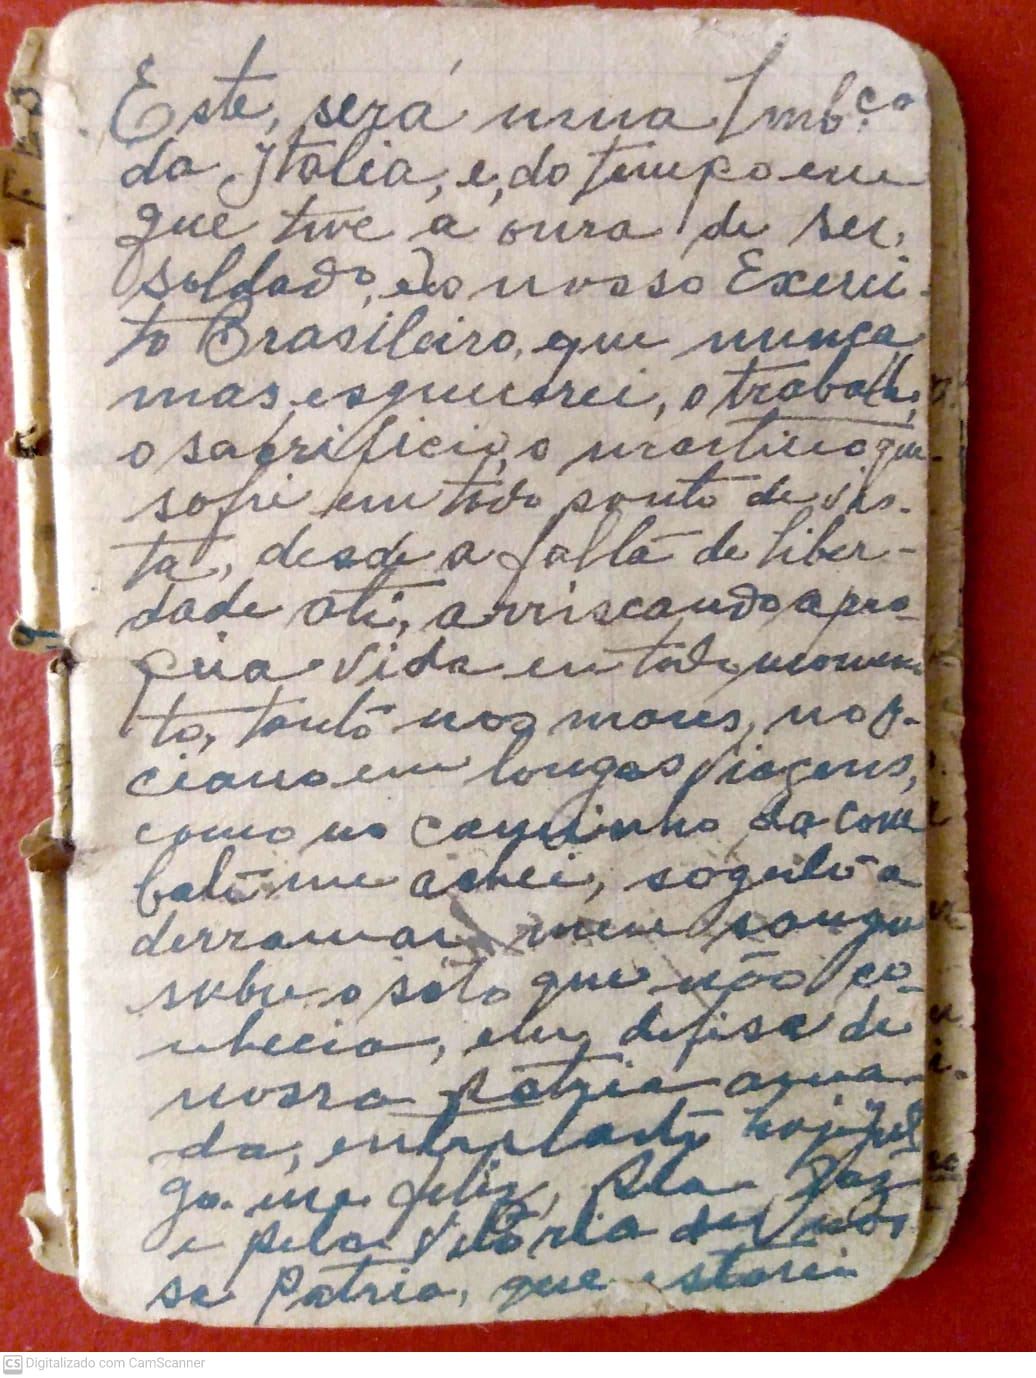 Este, será uma Lmb.ço
da Italia, e, do tempo em
que tive a onra de ser,
soldado, do nosso Exerci-
to Brasileiro, que nunca
mas esquecerei, o trabalho,
o sacrificio, o martirio que
sofri em todo ponto de vis-
ta, desde a falta de liber-
dade ati, arriscando a pro-
pria vida em todo momen
to, tanto nos mares, no o-
ciano em longas viagens,
como no caminho da com
bate me achei,
derramar meu sangue
sobre o solo que não co-
nhecia, em defisa de
nossa patria ama
da, entretanto hoje jul
go-me feliz, pela Paz
e pela Vitória de nos
sa Patria, que estarei
Digitalizado com CamScanner